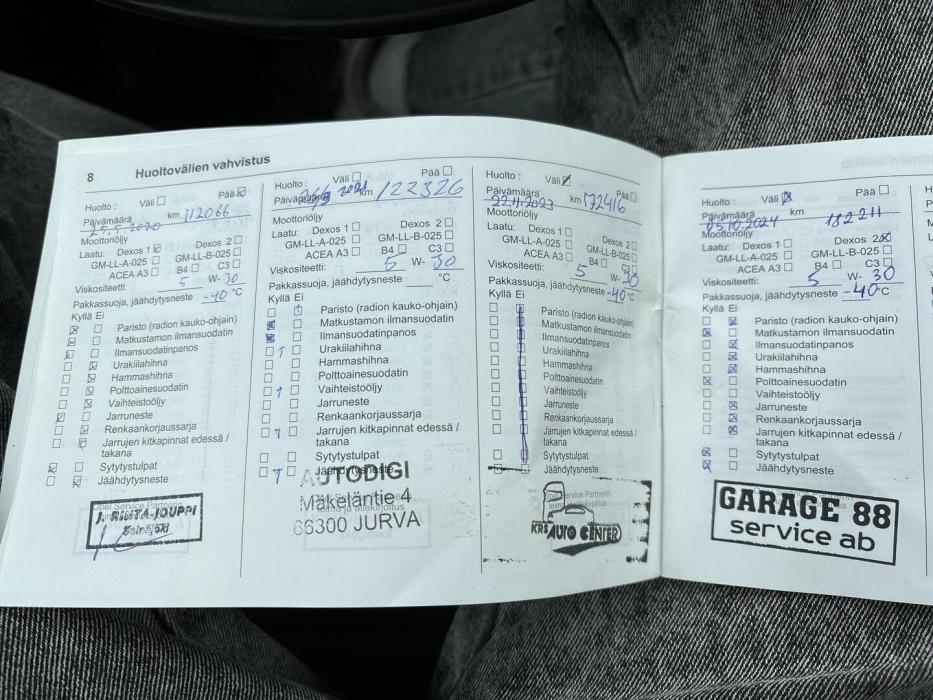 8 Huoltovälien vahvistus
Huolto : Väli Pää
Päivämäärä km 112066
25.5.2020
Moottoriöljy
Laatu: Dexos 1 Dexos 2
GM-LL-A-025 GM-LL-B-025
ACEA A3 B4 C3
Viskositeetti: 5 W- 30
Pakkassuoja, jäähdytysneste -40 °C
Kyllä Ei
Paristo (radion kauko-ohjain)
Matkustamon ilmansuodatin
Ilmansuodatinpanos
Urakiilahihna
Hammashihna
Polttoainesuodatin
Vaihteistoöljy
Jarruneste
Renkaankorjaussarja
Jarrujen kitkapinnat edessä /
takana
Sytytystulpat
Jäähdytysneste
J. RINTA-JOUPPI
Seinäjoki
Huolto : Väli Pää
Päivämäärä 2021 km 122326
Moottoriöljy
Laatu: Dexos 1 Dexos 2
GM-LL-A-025 GM-LL-B-025
ACEA A3 B4 C3
Viskositeetti: 5 W- 30
Pakkassuoja, jäähdytysneste °C
Kyllä Ei
Paristo (radion kauko-ohjain)
Matkustamon ilmansuodatin
Ilmansuodatinpanos
Urakiilahihna
Hammashihna
Polttoainesuodatin
Vaihteistoöljy
Jarruneste
Renkaankorjaussarja
Jarrujen kitkapinnat edessä /
takana
Sytytystulpat
Jäähdytysneste
AUTODIGI
Mäkeläntie 4
66300 JURVA
Huolto : Väli Pää
Päivämäärä km 172416
22.11.2023
Moottoriöljy
Laatu: Dexos 1 Dexos 2
GM-LL-A-025 GM-LL-B-025
ACEA A3 B4 C3
Viskositeetti: 5 W- 30
Pakkassuoja, jäähdytysneste -40 °C
Kyllä Ei
Paristo (radion kauko-ohjain)
Matkustamon ilmansuodatin
Ilmansuodatinpanos
Urakiilahihna
Hammashihna
Polttoainesuodatin
Vaihteistoöljy
Jarruneste
Renkaankorjaussarja
Jarrujen kitkapinnat edessä /
takana
Sytytystulpat
Jäähdytysneste
KRS AUTO CENTER
Huolto : Väli Pää
Päivämäärä km 182211
05.10.2024
Moottoriöljy
Laatu: Dexos 1 Dexos 2
GM-LL-A-025 GM-LL-B-025
ACEA A3 B4 C3
Viskositeetti: 5 W- 30
Pakkassuoja, jäähdytysneste -40 °C
Kyllä Ei
Paristo (radion kauko-ohjain)
Matkustamon ilmansuodatin
Ilmansuodatinpanos
Urakiilahihna
Hammashihna
Polttoainesuodatin
Vaihteistoöljy
Jarruneste
Renkaankorjaussarja
Jarrujen kitkapinnat edessä /
takana
Sytytystulpat
Jäähdytysneste
GARAGE 88
service ab